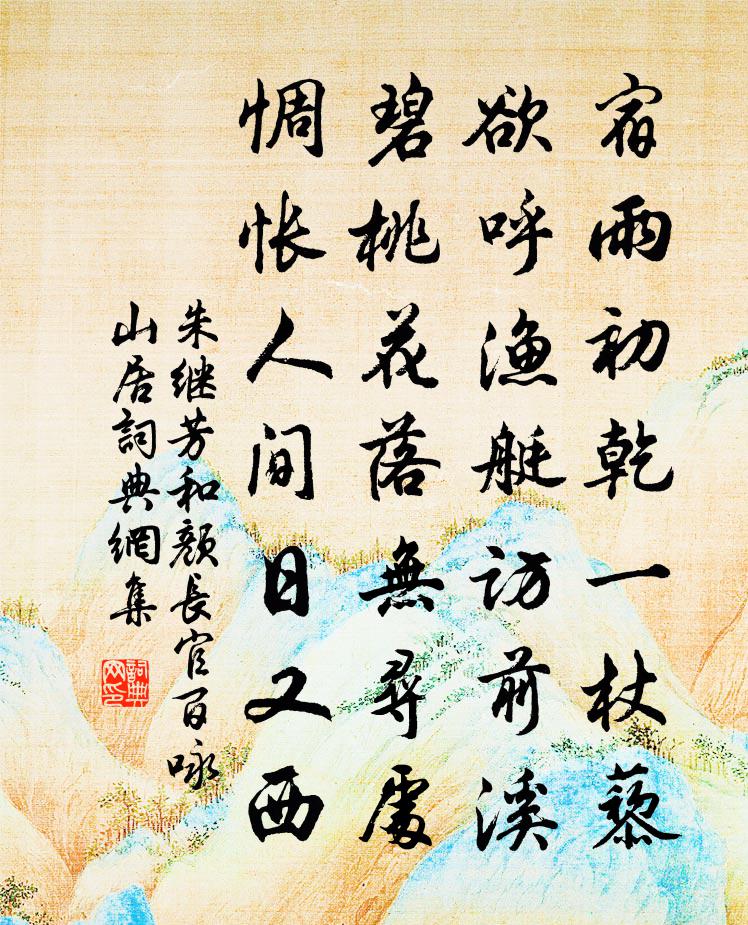 宿雨初乾一杖藜
欲呼漁艇訪前溪
碧桃花落無尋處
惆怅人间日又西
朱继芳和顏長官百咏
山居詞典網集
詞典网印